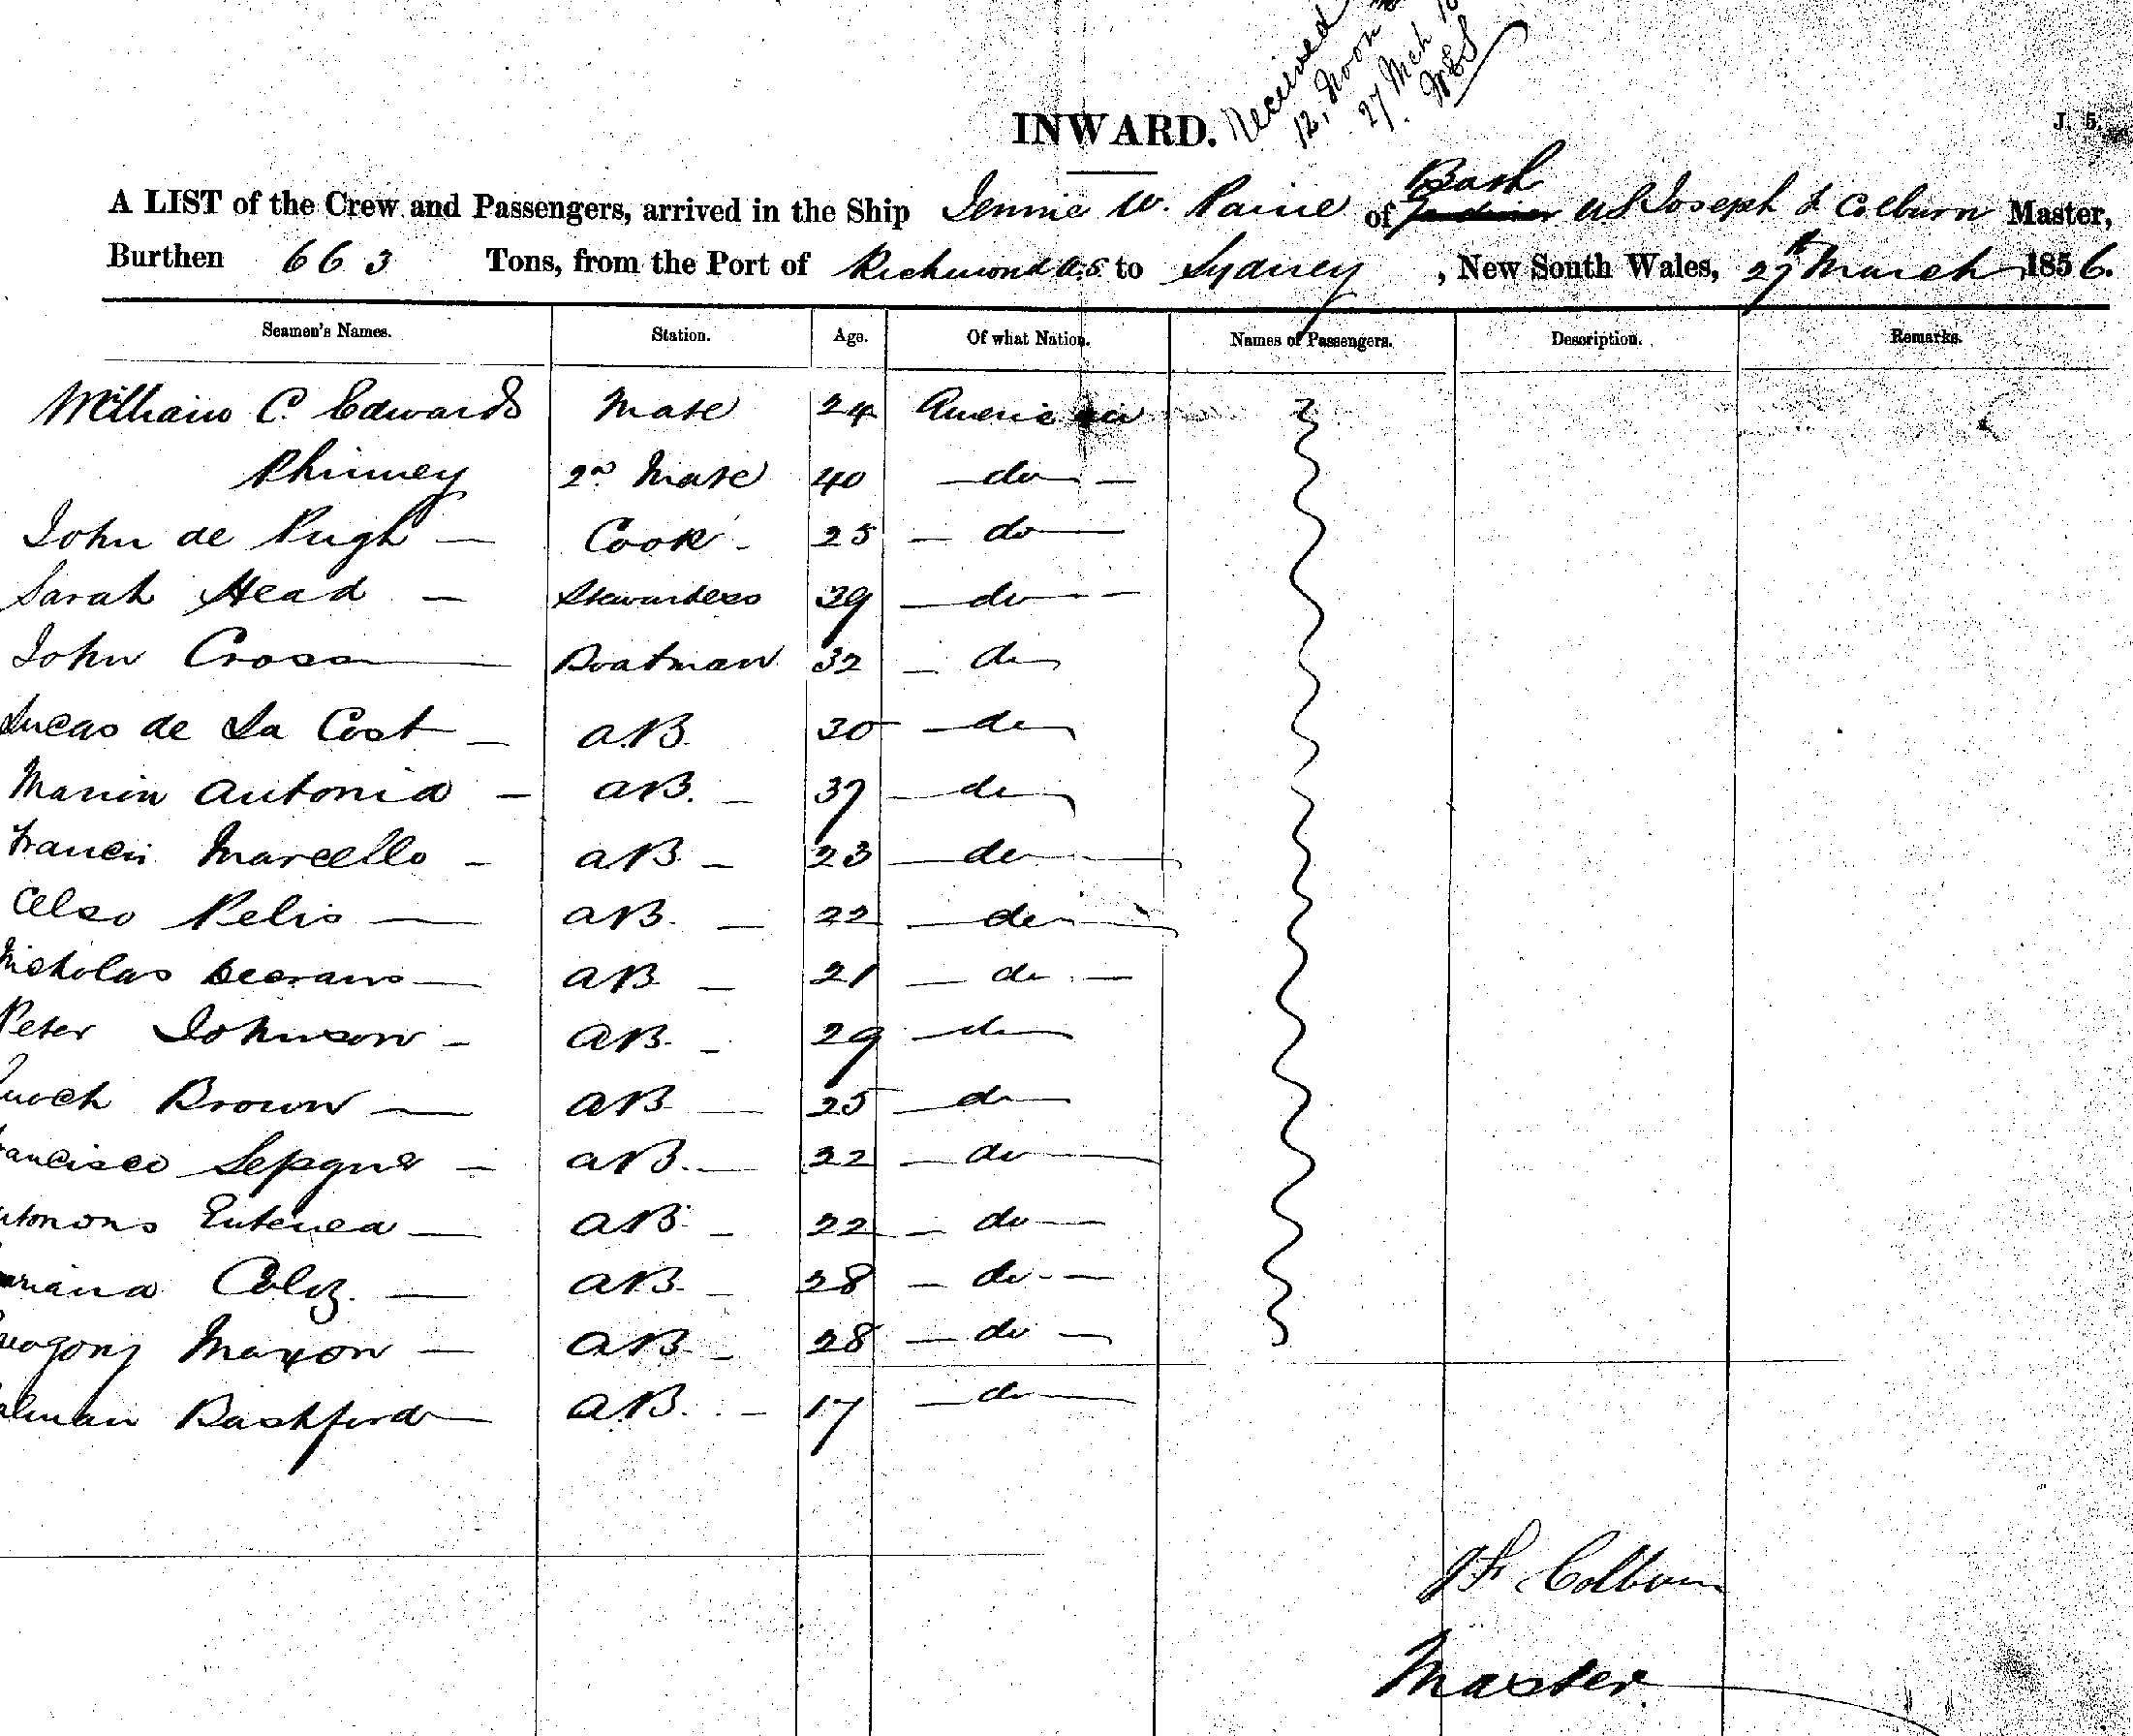 Received
12, Noon
27 Mch 18
INWARD.
J. 5.
Bath
A LIST of the Crew and Passengers, arrived in the Ship Jennie W. Paine of US Joseph F Colburn Master,
Burthen 663 Tons, from the Port of Richmond U.S. to Sydney, New South Wales, 27th March 1856.
Seamen's Names. Station. Age. Of what Nation. Names of Passengers. Description. Remarks.
William C. Edwards Mate 24 America
Phinney 2nd Mate 40 — do —
John de Pugh — Cook - 25 — do —
Sarah Head — Stewardess 39 — do —
John Cross — Boatman 32 — do
Lucas de La Cost — A.B. 30 — do
Marien Antonia — AB. — 37 — do
Francis Marcello — AB — 23 — do —
Celso Pelis — AB. — 22 — do —
Nicholas — AB — 21 — do —
Peter Johnson — AB. — 29 — do
Enoch Brown — AB — 25 — do
ancisco — AB. — 22 — do —
AB — 22 — do —
ariana — AB. — 28 — do —
Maxon — AB. — 28 — do —
alman Bashford — A.B. — 17 — do —
J F Colburn
Master